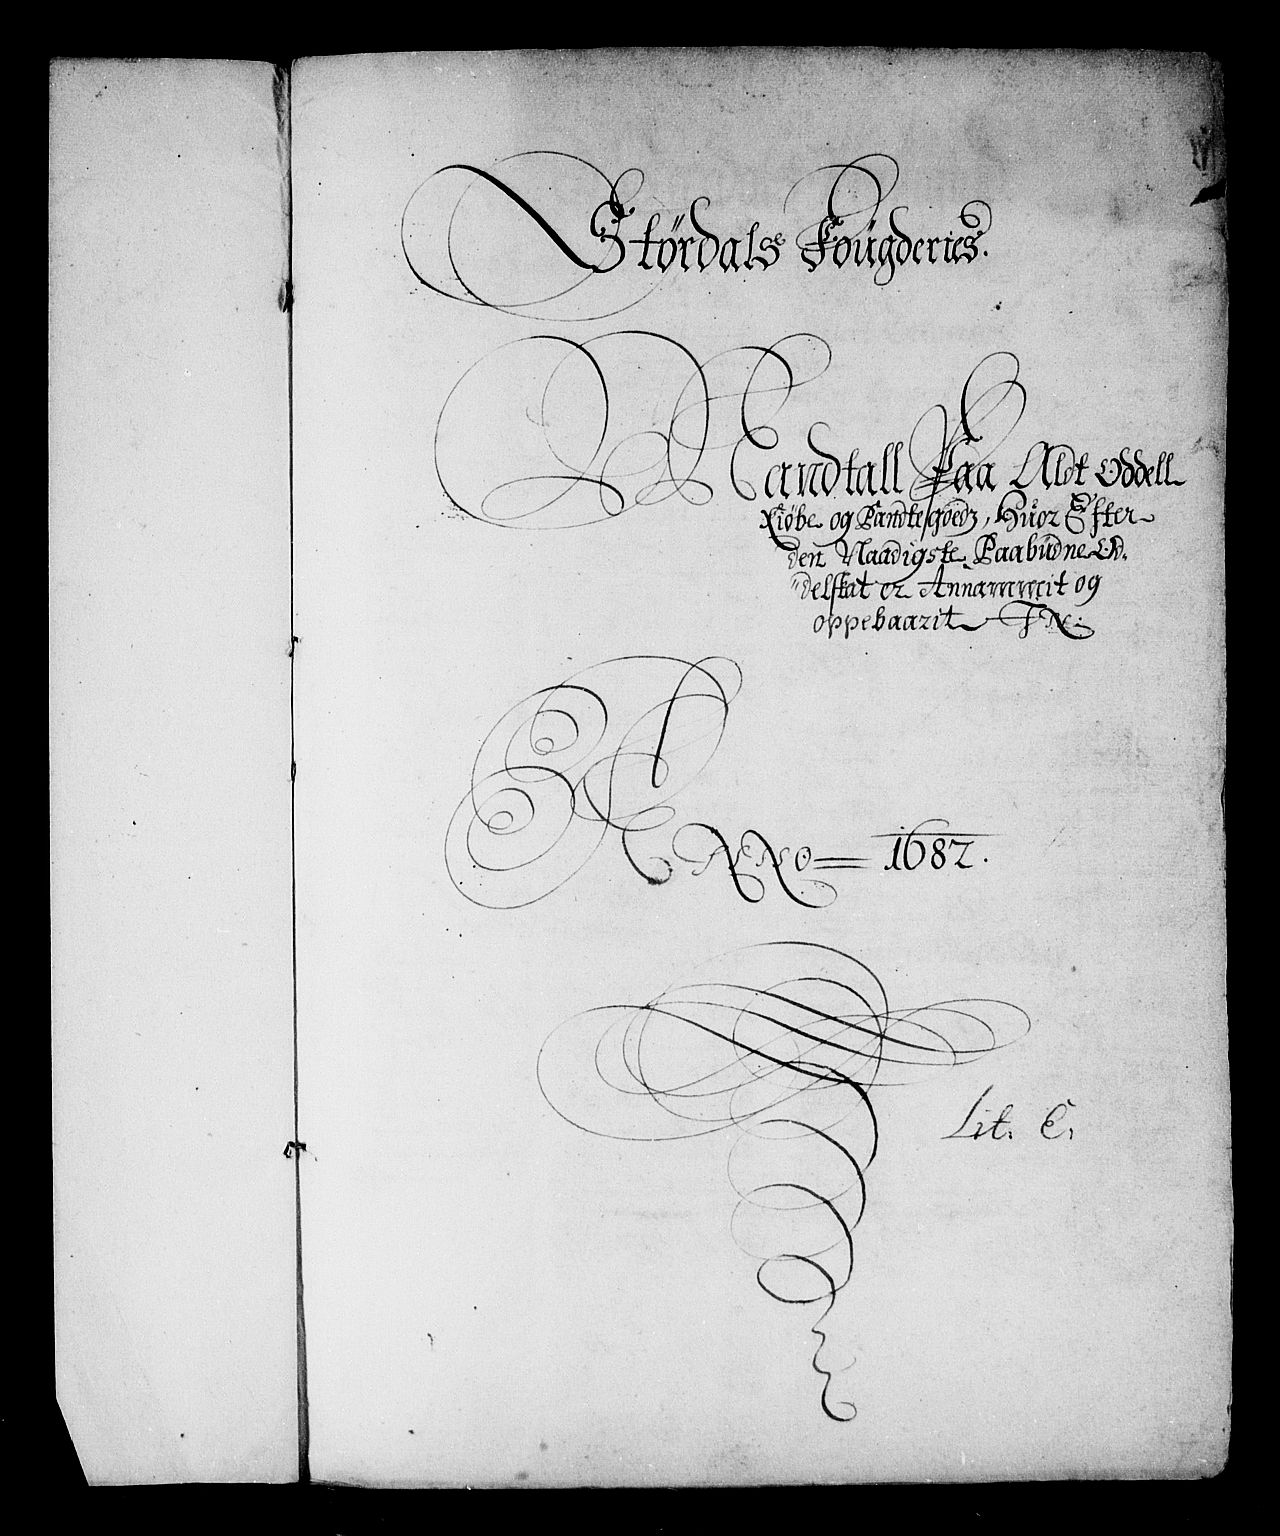 Størdals Foügderies.
Mandtall Paa Aldt Oddell
Kiøbe og Pandtegoedz, Hüor Efter
den Naadigste Paabüdne Od,
delskat er Annammit og
oppebaarit
Anno 1682.
Lit. C.